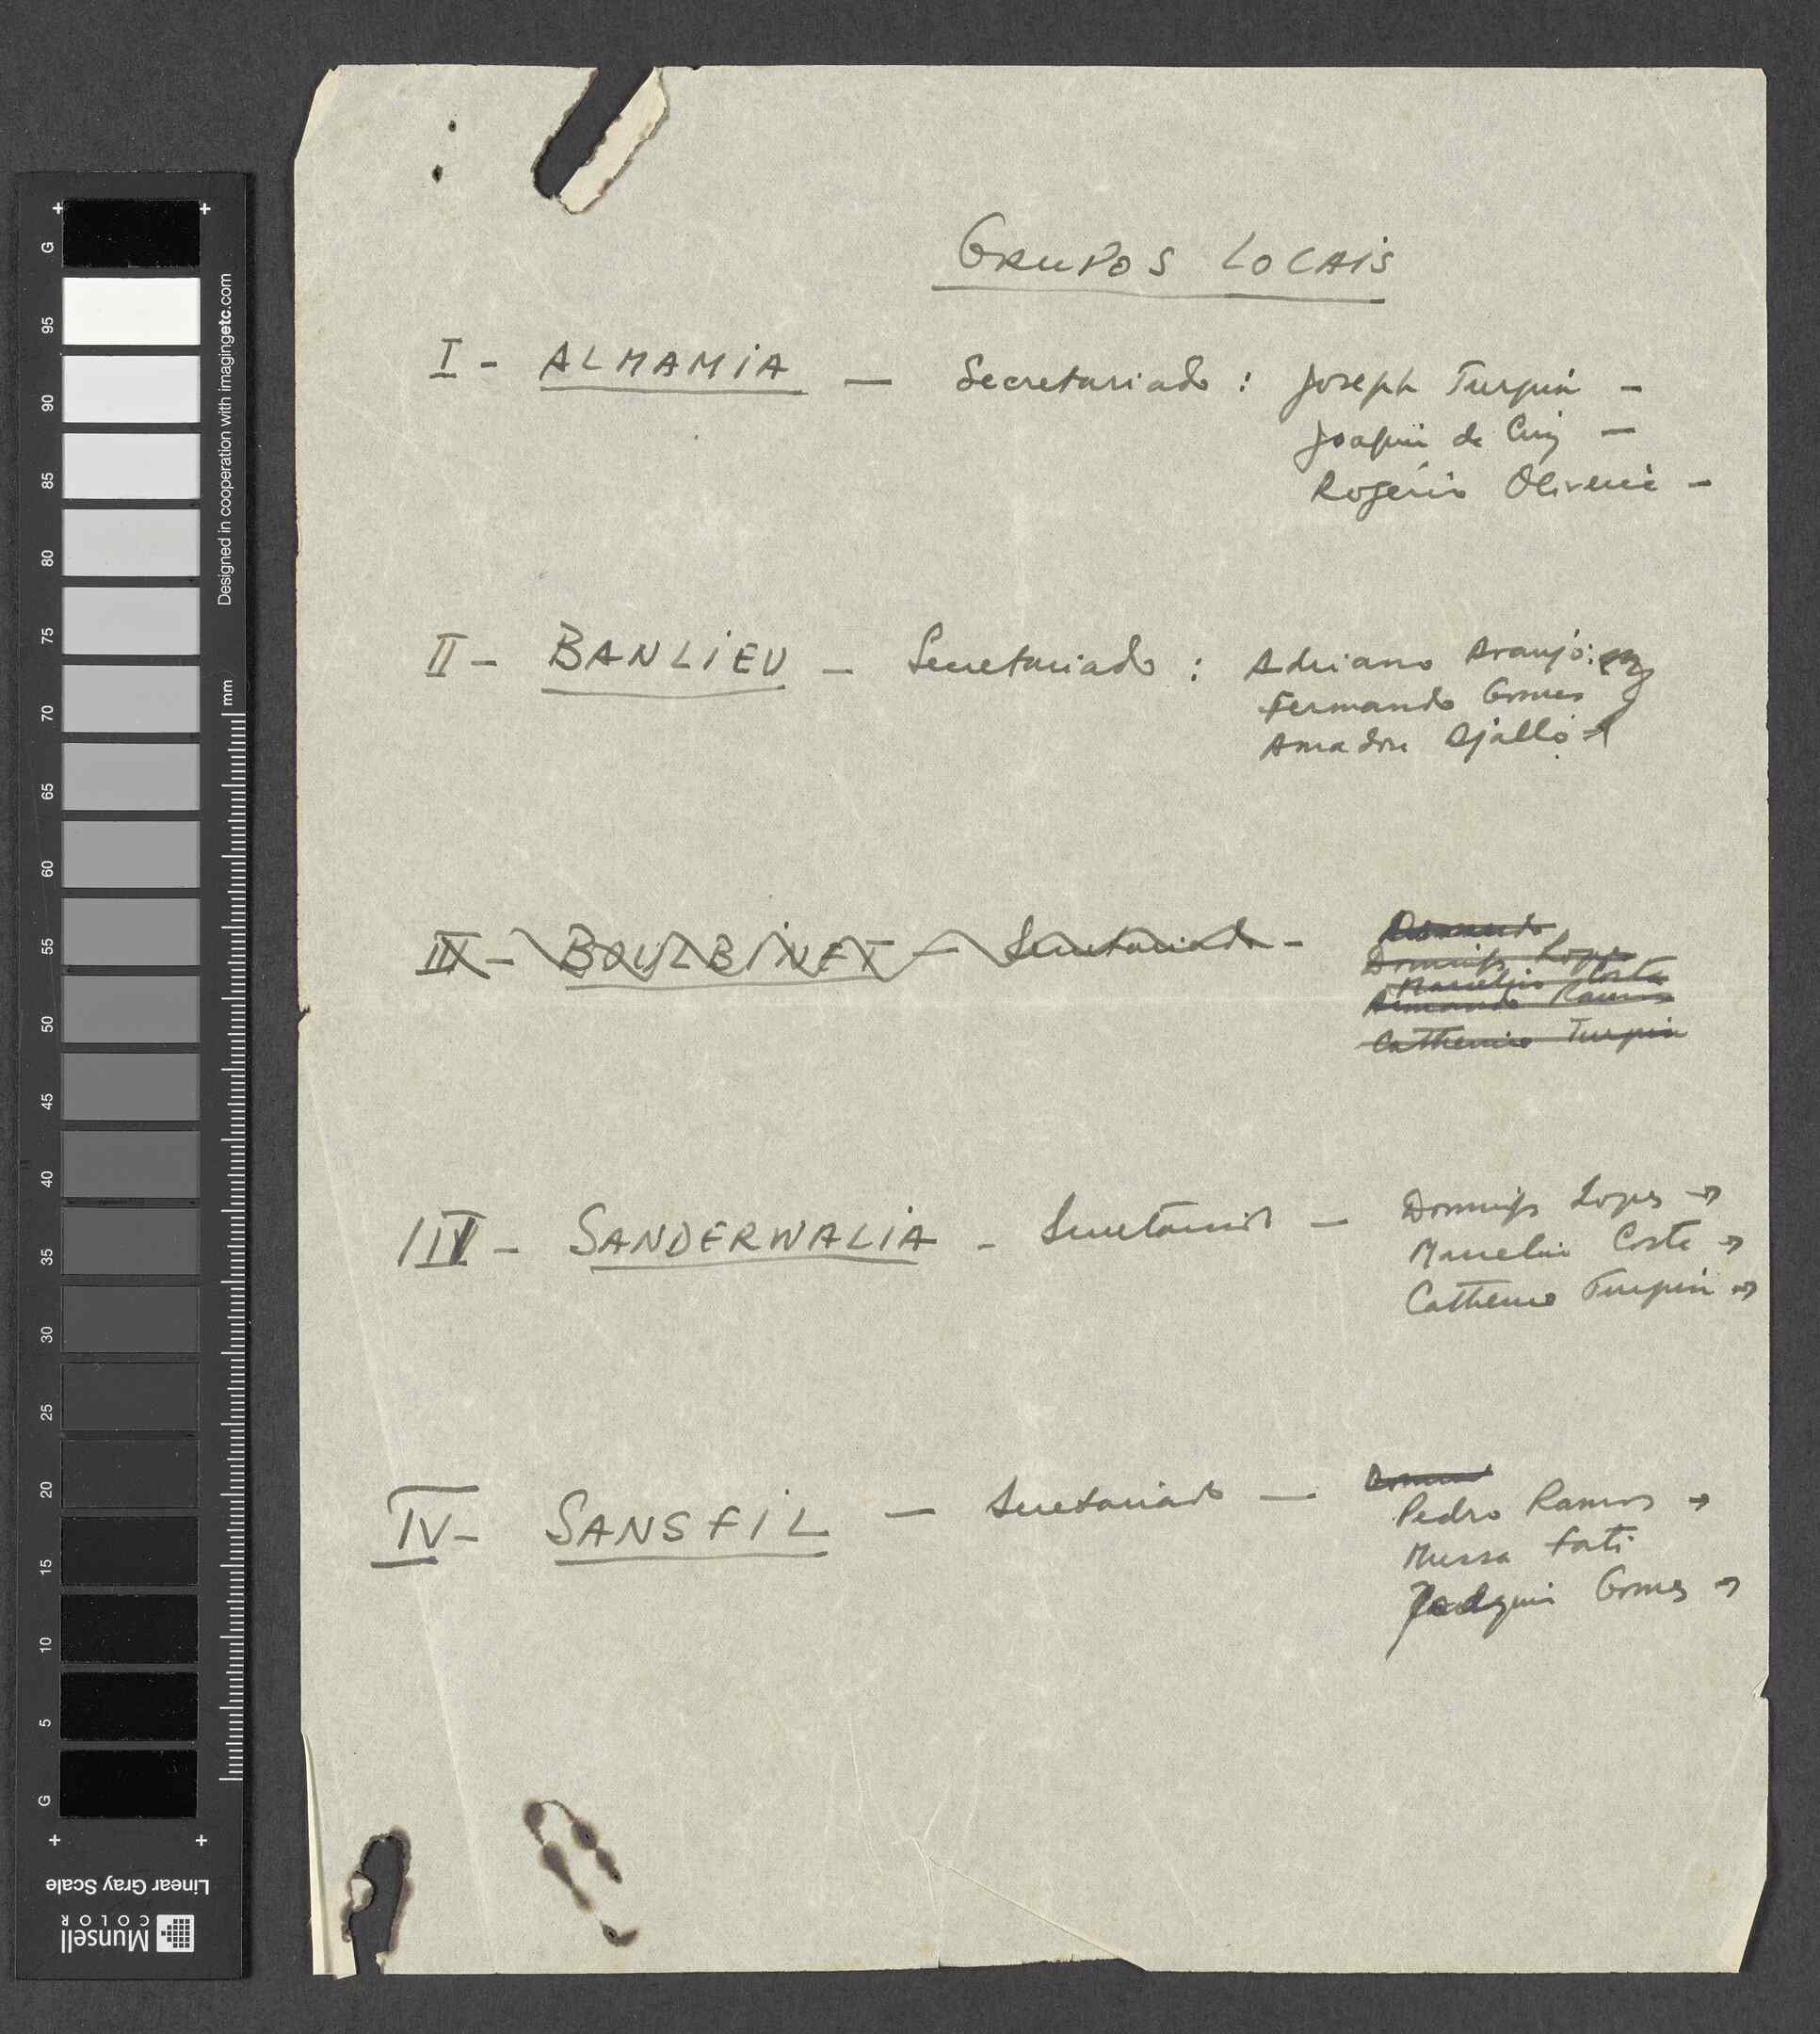 GRUPOS LOCAIS
I - ALMAMIA — Secretariado : Joseph Turpin -
Joaquim de —
Rogério Oliveira -
II - BANLIEU — Secretariado : Adriano Araujo:
Fernando Gomes
Amadou Djalló
III - BOULBINET — Secretariado -
Armando
Domingos Lopes
Marcelino Costa
Armando Ramos
Catherino Turpin
III - SANDERWALIA - Secretariado — Domingos Lopes →
Marcelino Costa →
Catherino Turpin →
IV - SANSFIL — Secretariado —
Pedro Ramos →
Mussa Fati
Joaquim Gomes →
G
95
90
85
80
75
70
65
60
55
50
45
40
35
30
25
20
15
10
5
G
mm
Designed in cooperation with imagingetc.com
Linear Gray Scale
Munsell
COLOR